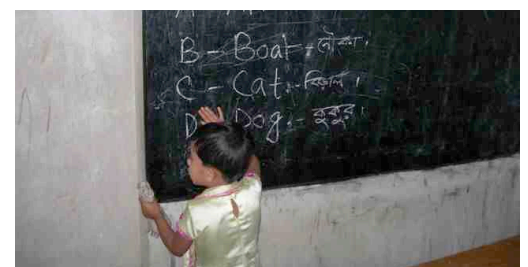 B - Boat - নৌকা।
C - Cat :- বিড়াল।
D Dog :- কুকুর।